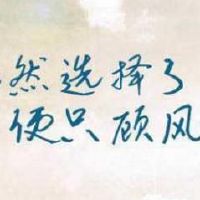 然选择了
便只顾风